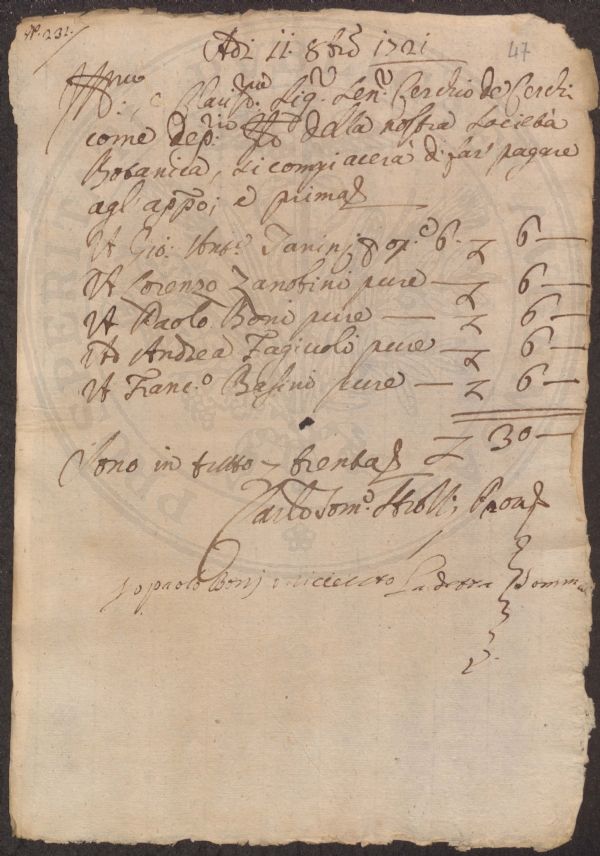 N.° 231.
47
Adi 11 8bre 1721
Illmo: e Clarismo: Sigre. Senre. Cerchio de Cerchi
come Deprio: dalla nostra Società
Botanica, si compiacerà di far' pagare
agl' apppo; e prima
A Gio: Anto. Tanini p op.e 6. £ 6 —
A Lorenzo Zanobini pure — £ 6 —
A Paolo Boni pure — £ 6 —
Ad Andrea Fagiuoli pure — £ 6 —
A Franco. Basini pure — £ 6 —
£ 30 —
Sono in tutto £ trenta
Carlo Tomo. Strozzi, Prov
Io paolo Bonj o riceuto La detta Somma